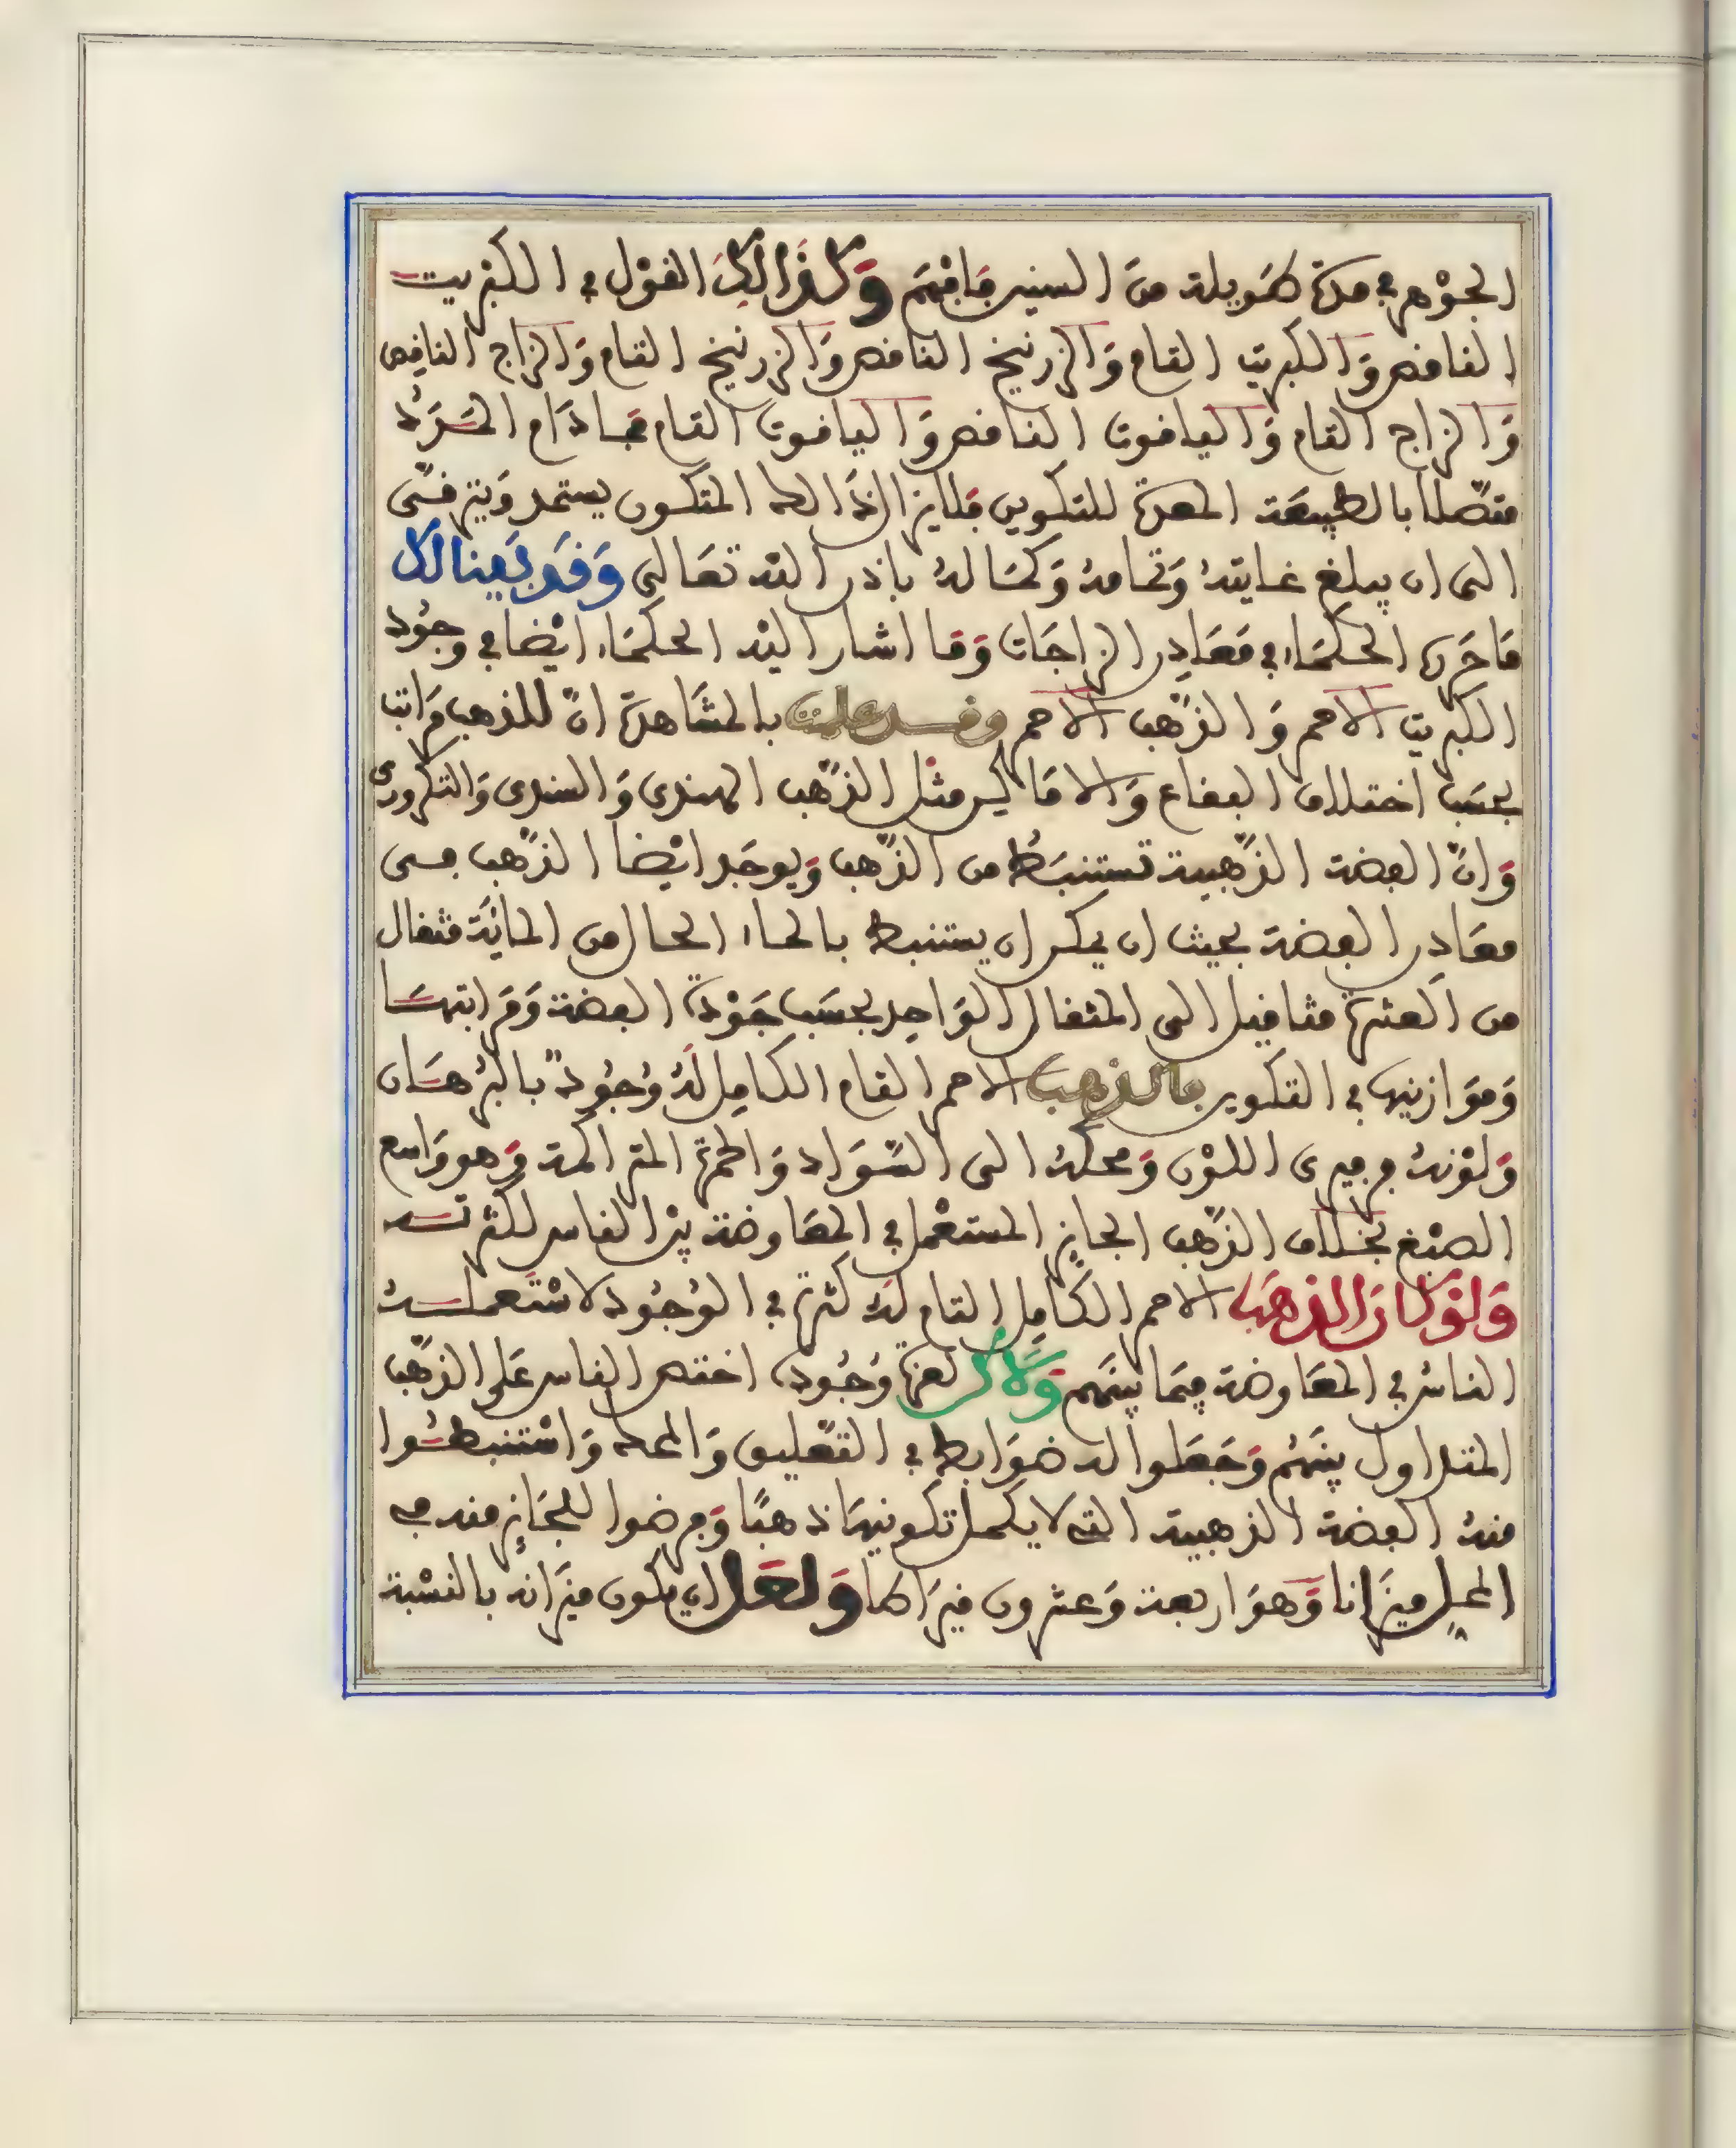 الجوهر في مدة طويلة من السنين فافهم وكذالك القول في الكبريت
الناقص والكبريت التام والزرنيخ الناقص والزرنيخ التام والزاج الناقص
والزاج التام والياقوت الناقص والياقوت التام فما دام المدد
متصلا بالطبيعة المعدة للتكوين فلا يزال ذالك المتكون يستمد ويترقى
الى ان يبلغ غايته وتمامه وكماله باذن الله تعالى وقد بينا لك
ما حرره الحكماء في معادن الزاجات وما اشار اليه الحكماء ايضا في وجود
الكبريت الاحمر والذهب الاحمر وقد علمت بالمشاهدة ان للذهب مراتب
بحسب اختلاف البقاع والاماكن مثل الذهب الهندي والسندي والتكروري
وان الفضة الذهبية تستنبط من الذهب ويوجد ايضا الذهب من
معادن الفضة بحيث ان يمكن ان يستنبط بالماء الحال من المائة مثقال
من العشرة مثاقيل الى المثقال الواحد بحسب جودة الفضة ومراتبها
وموازينها في التكوين فالذهب الاحمر التام الكامل له وجود بالبرهان
ولونه فرفيري اللون ومحكه الى السواد والحمرة المتراكمة وهو واسع
الصبغ بخلاف الذهب الجايز المستعمل في المعاوضة بين الناس لكثرته
ولو كان الذهب الاحمر الكامل التام له كثرة في الوجود لاستعمله
الناس في المعاوضة فيما بينهم ولاكن لعزة وجوده اختصر الناس على الذهب
المتداول بينهم وجعلوا له ضوابط في التعليق والمحك واستنبطوا
منه الفضة الذهبية التي لا يكمل تكوينها ذهبا وفرضوا للجايز منه في
المحل ميزانا وهو اربعة وعشرون قيراطا ولعل ان يكون ميزانه بالنسبة